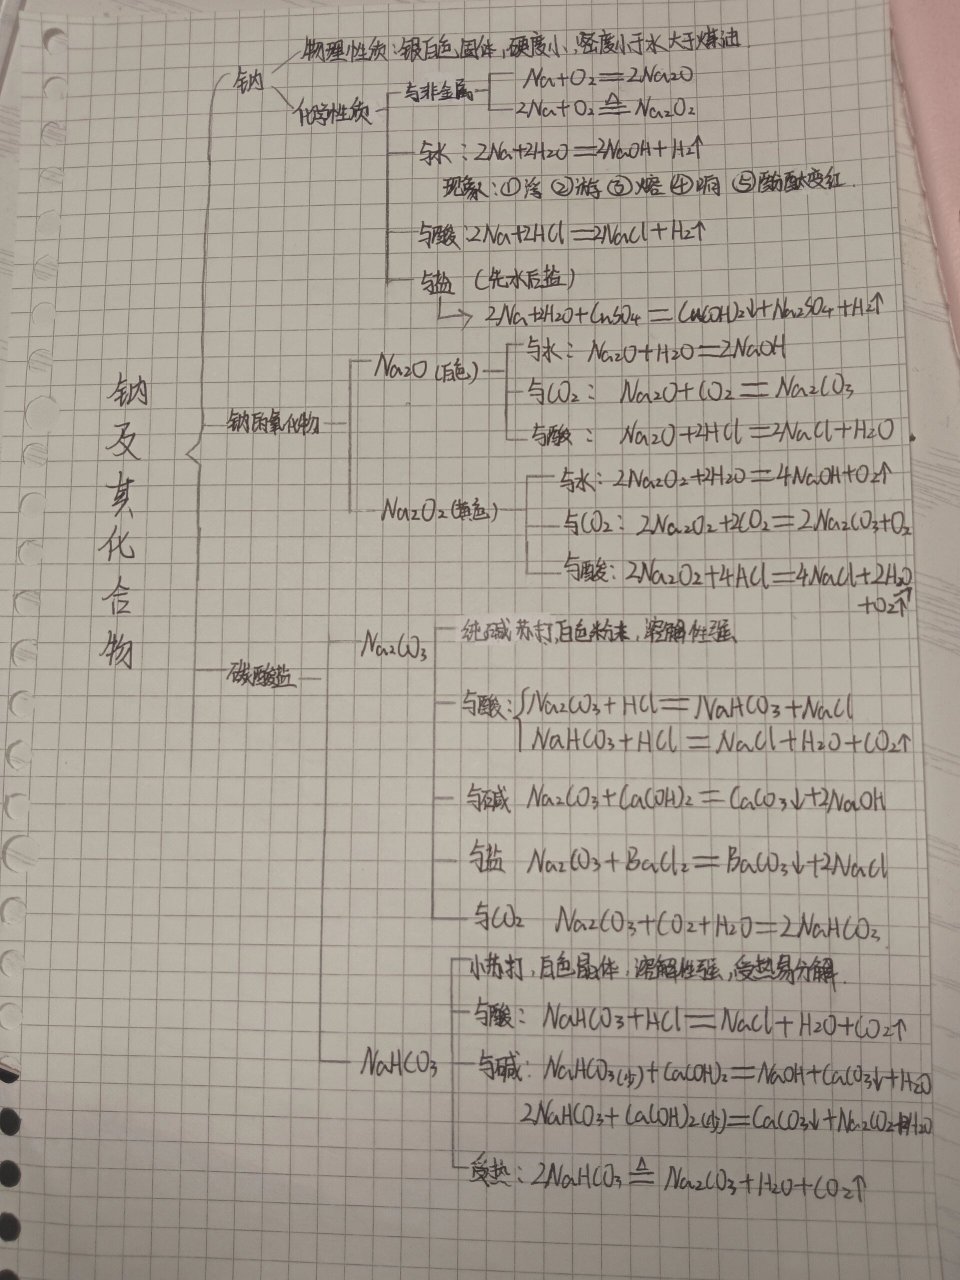 钠及其化合物
钠
物理性质：银白色固体，硬度小，密度小于水大于煤油
化学性质
与非金属
Na+O2=2Na2O
2Na+O2≜Na2O2
与水：2Na+2H2O=2NaOH+H2↑
现象：①浮②游③熔④响⑤酚酞变红.
与酸：2Na+2HCl=2NaCl+H2↑
与盐（先水后盐）
2Na+2H2O+CuSO4=Cu(OH)2↓+Na2SO4+H2↑
钠的氧化物
Na2O（白色）
与水：Na2O+H2O=2NaOH
与CO2：Na2O+CO2=Na2CO3
与酸：Na2O+2HCl=2NaCl+H2O
Na2O2（黄色）
与水：2Na2O2+2H2O=4NaOH+O2↑
与CO2：2Na2O2+2CO2=2Na2CO3+O2
与酸：2Na2O2+4HCl=4NaCl+2H2O
+O2↑
碳酸盐
Na2CO3
纯碱苏打，白色粉末，溶解性强
与酸：Na2CO3+HCl=NaHCO3+NaCl
NaHCO3+HCl=NaCl+H2O+CO2↑
与碱 Na2CO3+Ca(OH)2=CaCO3↓+2NaOH
与盐 Na2CO3+BaCl2=BaCO3↓+2NaCl
与CO2 Na2CO3+CO2+H2O=2NaHCO3
NaHCO3
小苏打，白色晶体，溶解性强，受热易分解.
与酸：NaHCO3+HCl=NaCl+H2O+CO2↑
与碱：NaHCO3(少)+Ca(OH)2=NaOH+CaCO3↓+H2O
2NaHCO3+Ca(OH)2(少)=CaCO3↓+Na2CO3+H2O
受热：2NaHCO3≜Na2CO3+H2O+CO2↑